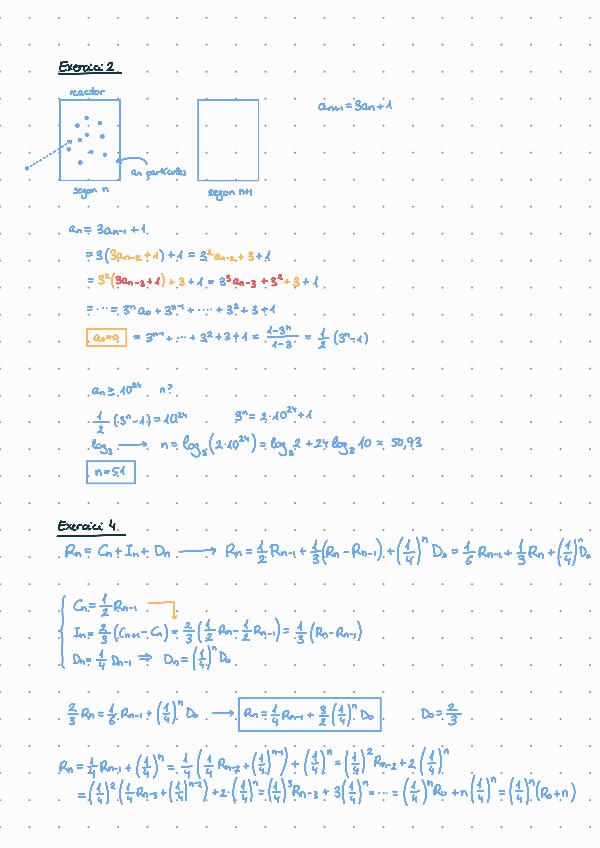 Exercici 2
reactor
aₙ₊₁ = 3aₙ + 1
aₙ partícules
segon n
segon n+1
aₙ = 3aₙ₋₁ + 1
= 3(3aₙ₋₂ + 1) + 1 = 3²aₙ₋₂ + 3 + 1
= 3²(3aₙ₋₃ + 1) + 3 + 1 = 3³aₙ₋₃ + 3² + 3 + 1
= ··· = 3ⁿa₀ + 3ⁿ⁻¹ + ··· + 3² + 3 + 1
a₀=0 = 3ⁿ⁻¹ + ··· + 3² + 3 + 1 = (1-3ⁿ)/(1-3) = 1/2 (3ⁿ-1)
aₙ ≥ 10²⁴ n?
1/2 (3ⁿ-1) = 10²⁴ 3ⁿ = 2·10²⁴ + 1
log₃ → n = log₃(2·10²⁴) = log₃ 2 + 24 log₃ 10 ≈ 50,93
n = 51
Exercici 4
Rₙ = Cₙ + Iₙ + Dₙ → Rₙ = 1/2 Rₙ₋₁ + 1/3 (Rₙ - Rₙ₋₁) + (1/4)ⁿ D₀ = 1/6 Rₙ₋₁ + 1/3 Rₙ + (1/4)ⁿ D₀
Cₙ = 1/2 Rₙ₋₁
Iₙ = 2/3 (Cₙ₊₁ - Cₙ) = 2/3 (1/2 Rₙ - 1/2 Rₙ₋₁) = 1/3 (Rₙ - Rₙ₋₁)
Dₙ = 1/4 Dₙ₋₁ ⇒ Dₙ = (1/4)ⁿ D₀
2/3 Rₙ = 1/6 Rₙ₋₁ + (1/4)ⁿ D₀ → Rₙ = 1/4 Rₙ₋₁ + 3/2 (1/4)ⁿ D₀ D₀ = 2/3
Rₙ = 1/4 Rₙ₋₁ + (1/4)ⁿ = 1/4 (1/4 Rₙ₋₂ + (1/4)ⁿ⁻¹) + (1/4)ⁿ = (1/4)² Rₙ₋₂ + 2 (1/4)ⁿ
= (1/4)² (1/4 Rₙ₋₃ + (1/4)ⁿ⁻²) + 2·(1/4)ⁿ = (1/4)³ Rₙ₋₃ + 3 (1/4)ⁿ = ··· = (1/4)ⁿ R₀ + n (1/4)ⁿ = (1/4)ⁿ (R₀ + n)